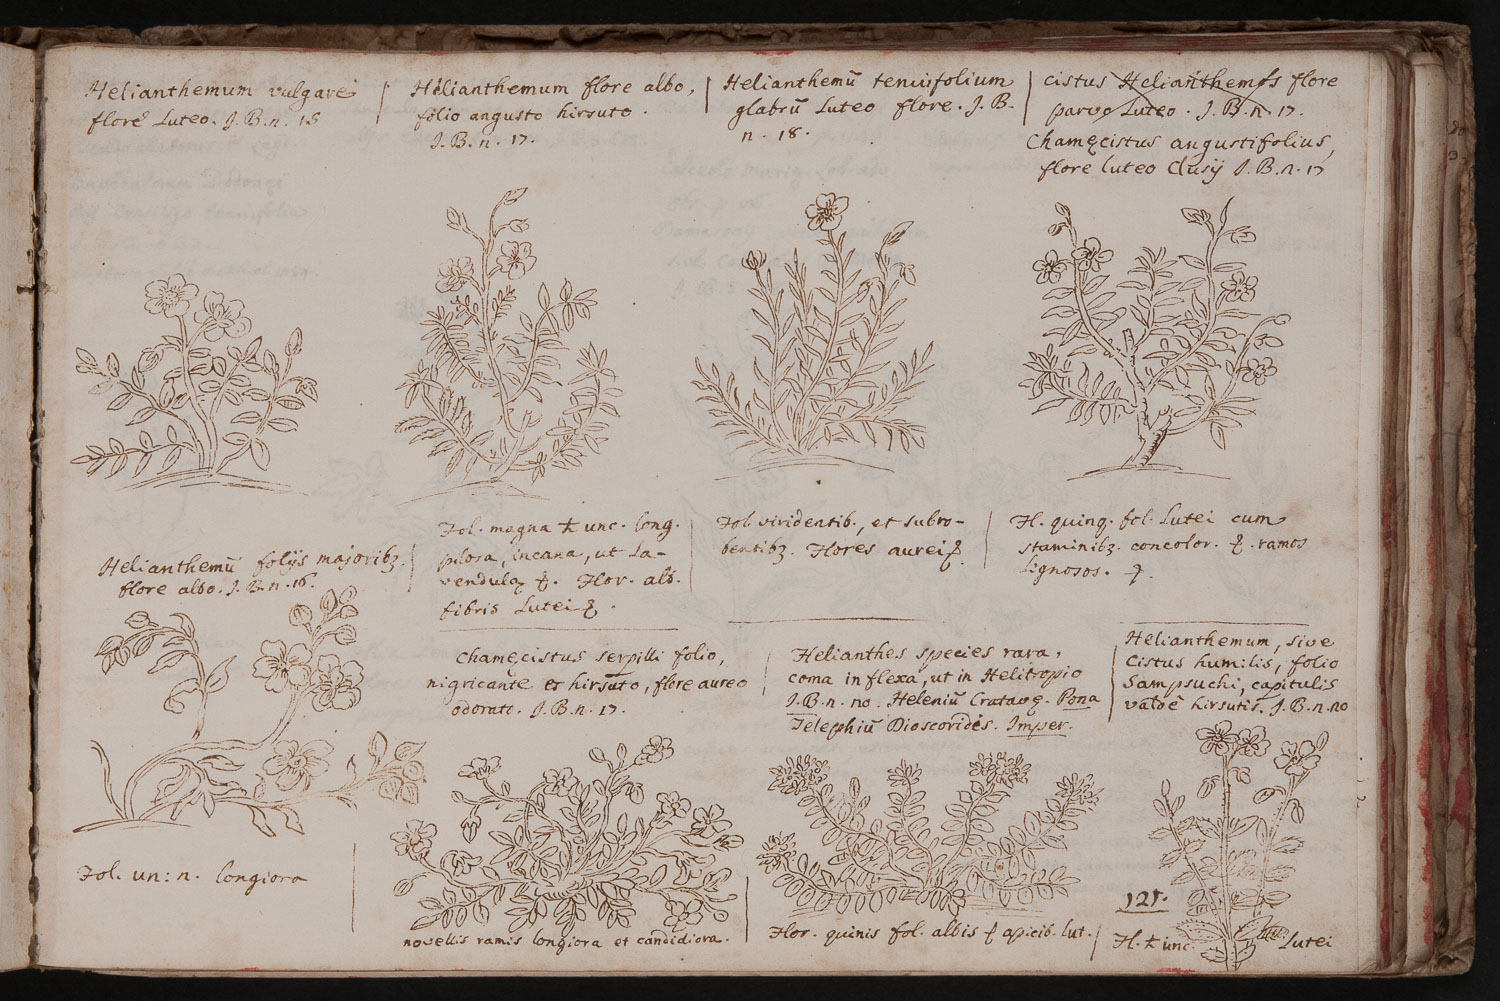 Helianthemum vulgare
flore Luteo. J.B.n. 15
Helianthemum flore albo,
folio angusto hirsuto.
J.B.n. 17.
Helianthemũ tenuifolium
glabrũ Luteo flore. J.B.
n. 18.
cistus Helianthemos flore
parvo Luteo. J.B.n. 17.
Chamęcistus angustifolius,
flore luteo Clusij J.B.n. 17
Helianthemũ folijs majoribꝫ
flore albo. J.B.n. 16.
Fol. magna unc. long.
pilosa, incana, ut La-
vendulę Flor. alb.
fibris Lutei
Fol viridentib., et subro-
bentibꝫ. Flores aurei
Fl. quinq. fol. Lutei cum
staminibꝫ. concolor. ramos
Lignosos.
Chamęcistus serpilli folio,
nigricante et hirsuto, flore aureo
odorato. J.B.n. 17.
Helianthes species rara,
coma inflexa, ut in Helitropio
J.B.n. no. Heleniũ Cratavę. Pona
Telephiũ Dioscorides. Imper.
Helianthemum, sive
Cistus humilis, folio
Sampsuchi, capitulis
valde hirsutis. J.B.n. no
Fol. un: n. longiora
novellis ramis longiora et candidiora.
Flor. quinis fol. albis apicib. lut.
121.
Fl. unc. Lutei